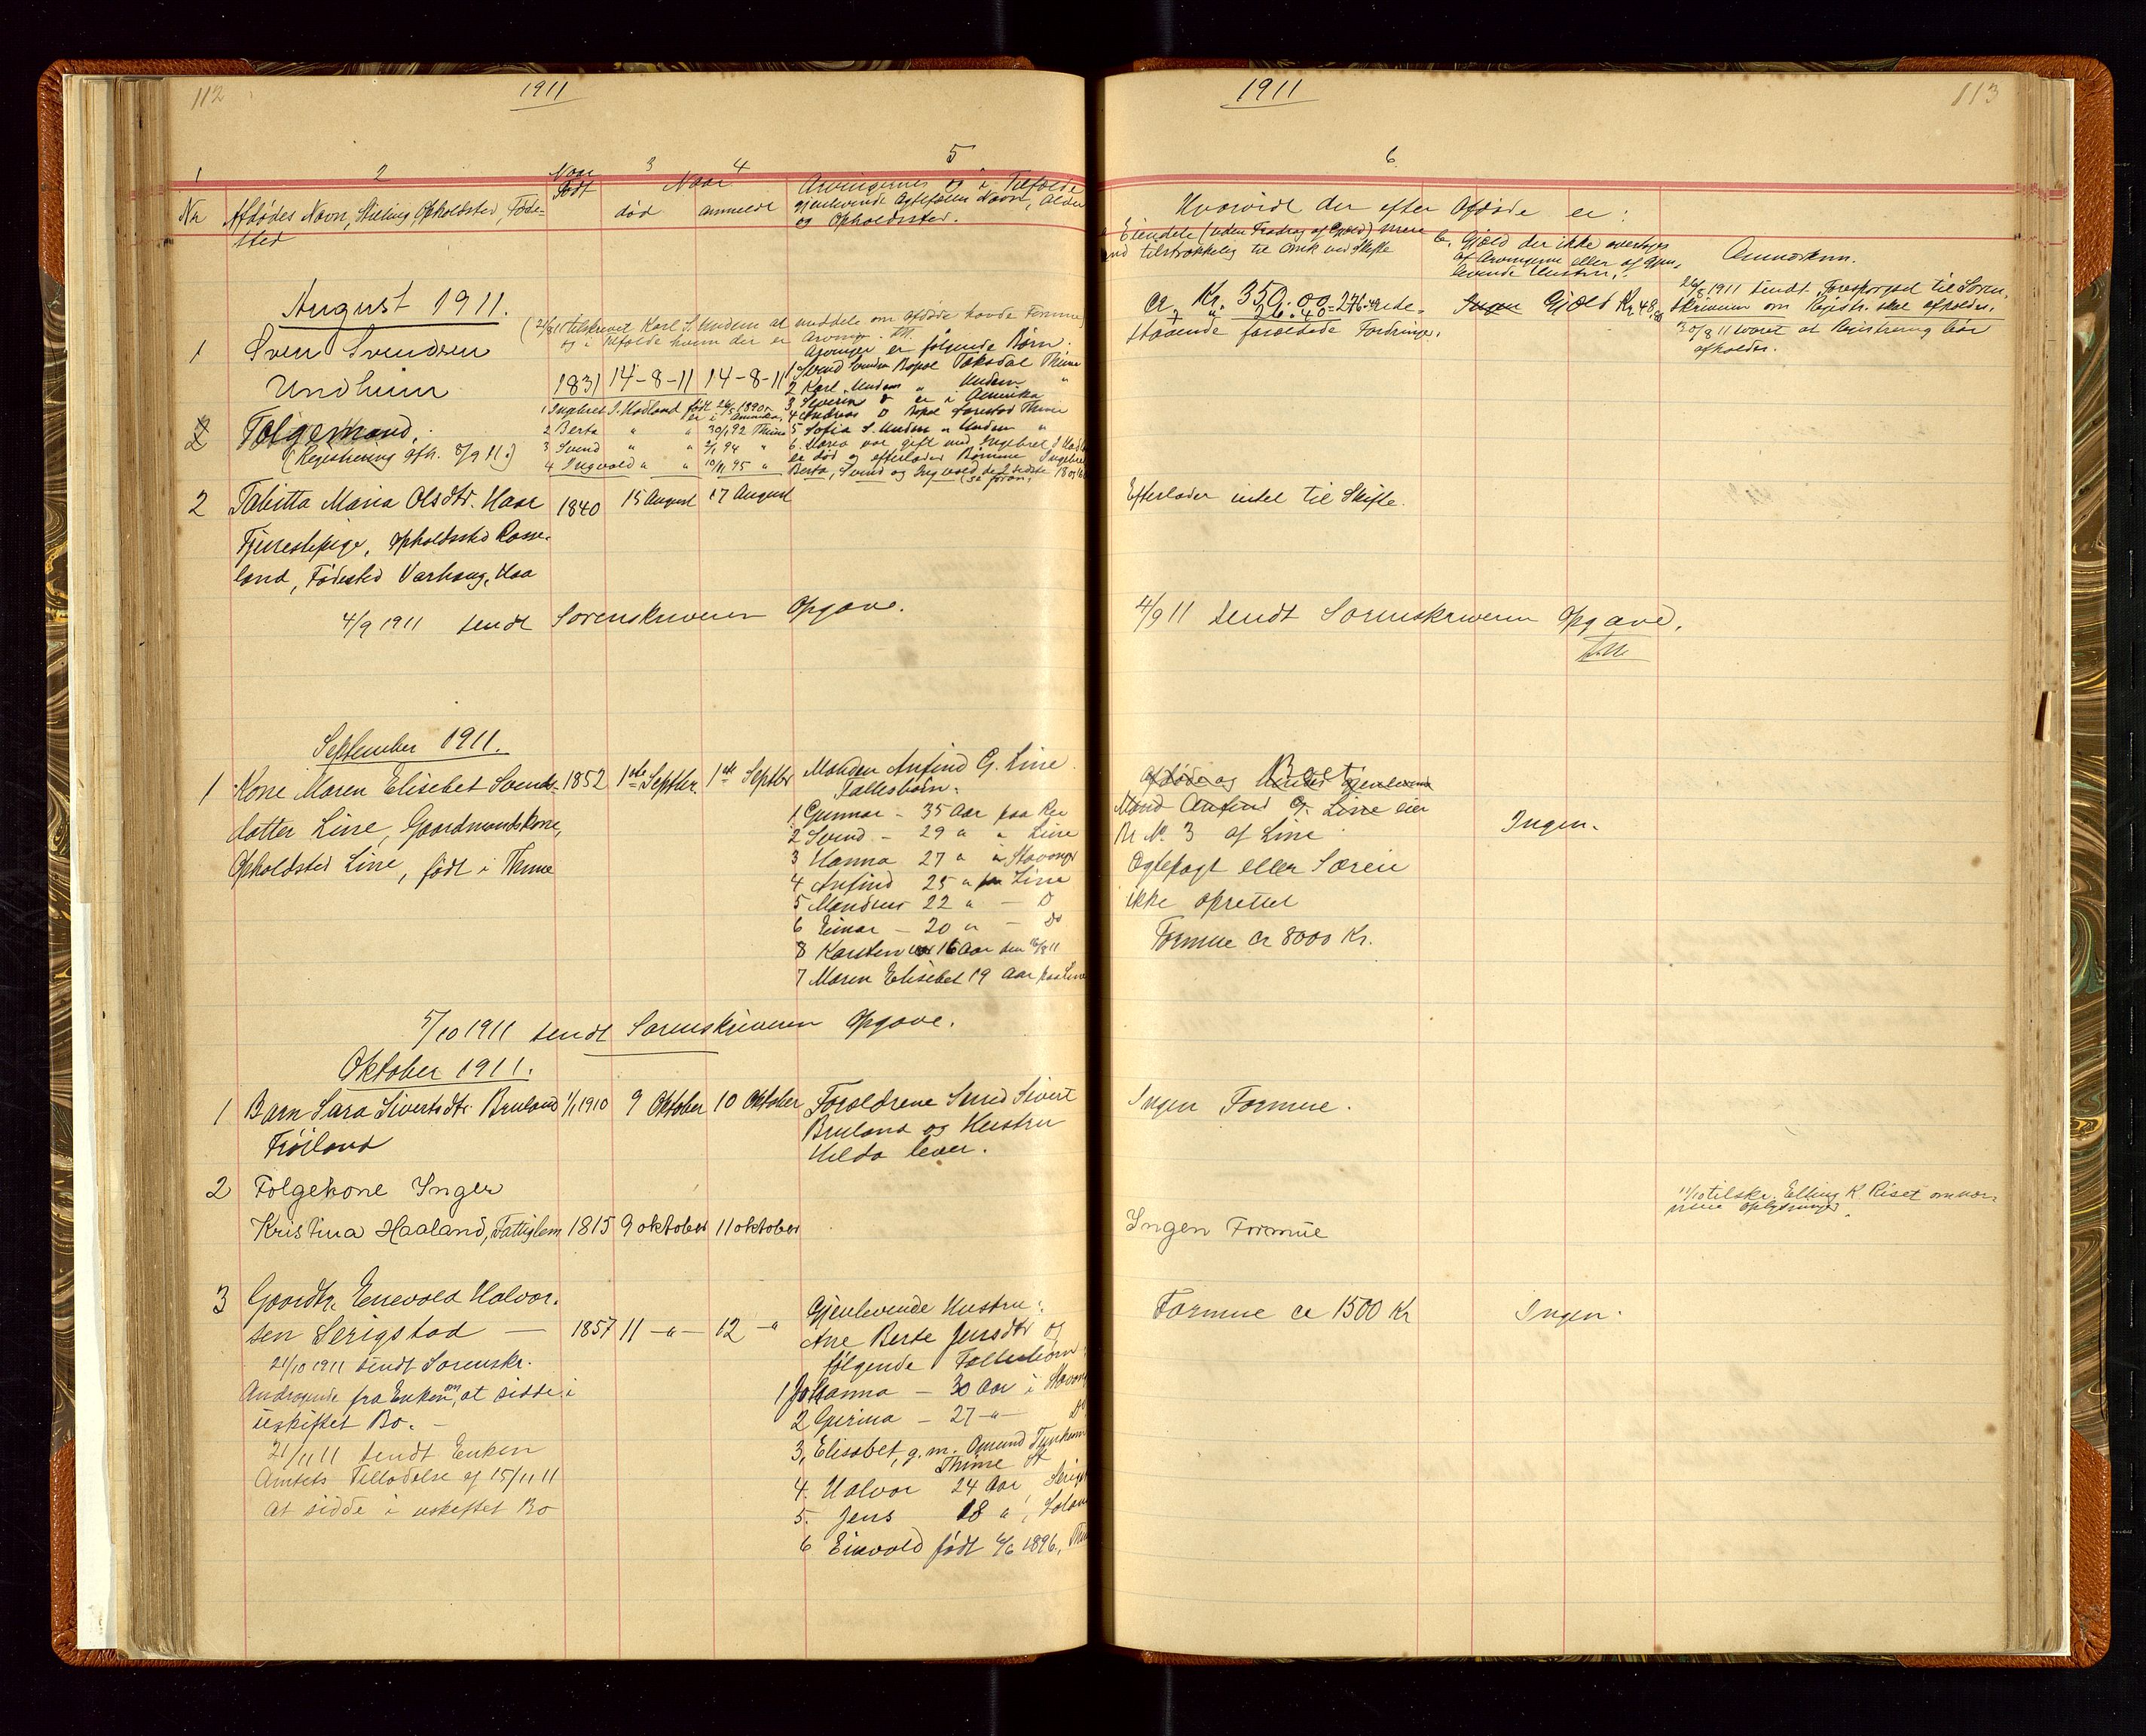 112
1911
1
2
Naar
født
3
Naar
4
5
No
Afdødes Navn, Stilling, Opholdsted, Føde-
sted
død
anmeldt
Arvingernes og i Tilfælde
gjenlevende Ægtefælles Navn, Alder
og Opholdssted.
August 1911.
(21/8 11 tilskrevet Karl S. Undem at meddele om afdøde havde Formue
og i tilfælde hvem der er Arving.
1
Sven Svendsen
Undheim
1831
14-8-11
14-8-11
Arvinger er følgende Børn:
1 Svend Svendsen Bopæl Taksdal Thime
2 Karl Undem " Undem "
3 Severin D er i Amerika
4 Andreas D Bopæl Thime
5 Sofia S. Undem " Undem "
6. Maria var gift med Ingebret S Hadland
er død og efterlader Børnene Ingebret
Berta, Svend og Ingvald de 2 sidste 18 og 16
(se foran.
2
Følgemand.
(Registrering afh. 8/9 11.)
1 Ingebret I. Hadland født 26/5 1890
er i Amerika.
2 Berta " " 30/1 92 Thime
3 Svend " " 2/1 94 "
4 Ingvald " " 10/11 95 "
2
Tabitta Maria Olsdtr. Haar
1840
15 August
17 August
Tjenestepige, Opholdssted Rosse-
land, Fødested Varhaug, Haa
4/9 1911 sendt Sorenskriveren Opgave.
September 1911.
1
Kone Maren Elisebet Svends-
datter Line, Gaardmandskone,
Opholdsted Line, født i Thime
1852
1ste Septbr.
1ste Septbr
Manden Anfind G. Line
Fællesbørn:
1 Gunnar - 35 Aar paa Re
2 Svend - 29 " " Line
3 Hanna 27 " " Stavanger
4 Anfind 25 " paa Line
5 Mandrus 22 " - D
6 Einar - 20 " - Do
8 Karsten 16 Aar den /8 11
7 Maren Elisebet 19 Aar paa Line
5/10 1911 sendt Sorenskriveren Opgave.
Oktober 1911.
1
Barn Sara Sivertsdtr Bruland
Frøiland
1/1 1910
9 Oktober
10 Oktober
Forældrene Smed Sivert
Bruland og Hustru
Hilda lever.
2
Folgekone Inger
Kristina Haaland, Fattiglem
1815
9 oktober
11 oktober
3
Gaardbr. Enevald Halvor-
sen Serigstad —
1857
11 -"-
12 -"
21/10 1911 sendt Sorenskr.
Andragende fra Enken om at sidde i
uskiftet Bo.-
21/11 11 sendt Enken
Amtets Tilladelse af 15/11 11
at sidde i uskiftet Bo
Gjenlevende Hustru:
Ane Berte Jensdtr og
følgende Fællesbørn:
1 Johanna - 30 Aar i Stavang
2 Gurina - 27 -"- Do
3, Elisabet, g. m. Omund
Thime
4. Halvor 24 Aar, Serigst
5. Jens 18 "
6 Enevold født 6/6 1896,
1911
113
6
Hvorvidt der efter Afdøde er:
a Eiendele (uden Fradrag af Gjæld) mere
end tilstrækkelig til Omk ved Skifte
b, Gjæld der ikke overtages
af Arvingerne eller af gjen-
levende Hustru.
Anmærkn.
ca. Kr. 350.00
26.40 = 276.40 ude-
staaende forældede Fordringer.
Ingen Gjæld Kr 48.
26/8 1911 sendt Forespørgsel til Soren-
skriveren om Registr. skal afholdes.
30/8 11 svaret at Registrering bør
afholdes.
Efterlader intet til Skifte.
4/9 11 sendt Sorenskriveren Opgave.
Afdøde og Boet gjenlevende
Mand Anfind G. Line eier
Br No 3 af Line
Ægtepagt eller Særeie
ikke oprettet
Formue ca 8000 Kr.
Ingen.
Ingen Formue.
11/10 tilskr. Elling K. Riset om nær-
mere Oplysninger.
Ingen Formue
Formue ca 1500 Kr
Ingen.